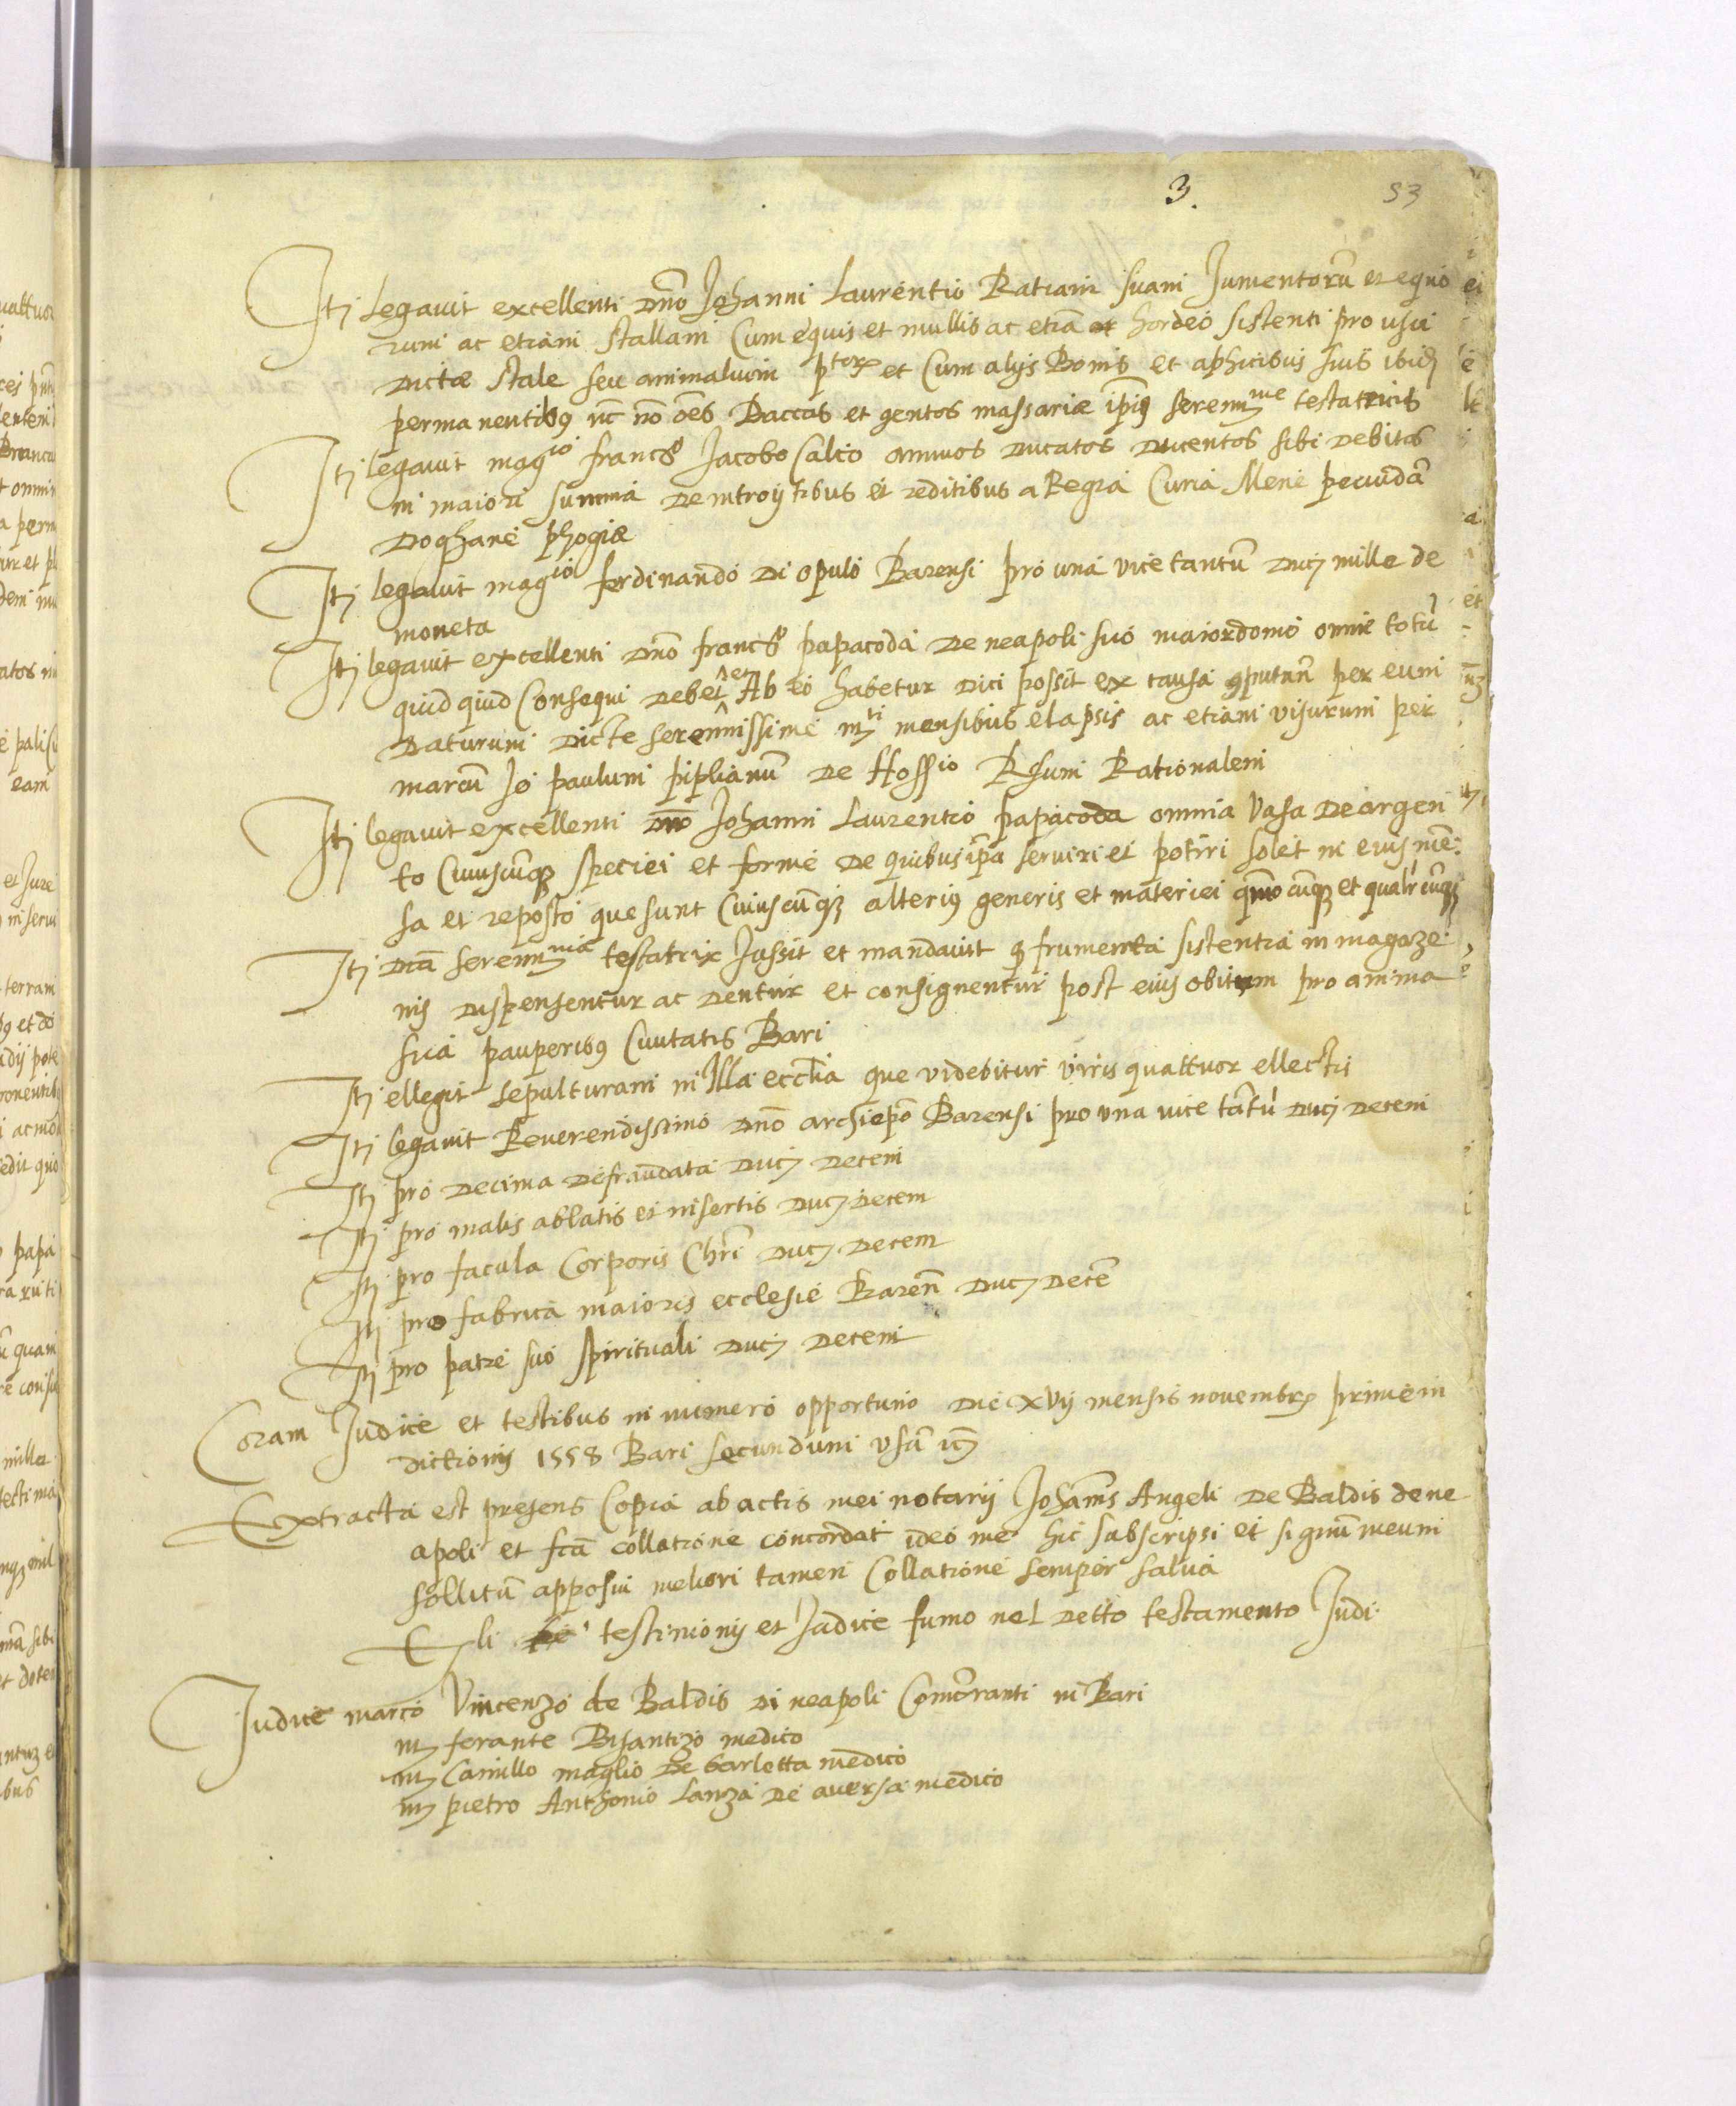 3.
53
Itȝ Legauit excellenti Dno Johanni Laurentio Ratiam suam Jumentorũ et equo
rum ac etiam stallam Cum equis et mullis ac etiã et hordeo sistenti pro usu
Dictæ stale seu animalium et Cum alijs Bonis et aphicibus suis ibid
permanentibus nc nõ oẽs Baccas et gentos massariæ ipius serenmme testatricis
Itȝ legauit magco francco Jacobo Calco annuos Ducatos Ducentos sibi Debitos
in maiori summa De introytibus et redditibus a Regia Curia Mene pecudã
Doqhane phogiæ
Itȝ legauit magco ferdinando Di opulo Barensi pro una vice tantũ Ducȝ mille de
moneta
Itȝ legauit excellenti Dno francco papacoda De neapoli suo maiordomo omne totũ
quid quid Consequi Debet et Ab eo habetur Dici possit ex causa per eum
Daturum Dicte serennissime mti mensibus elapsis ac etiam visurum per
marcũ Jo paulum piplianũ De Hossio Rsum Rationalem
Itȝ legauit excellenti Dno Johanni Laurentio papacoda omnia Vasa De argen
to Cuiuscumqȝ speciei et forme De quibus ipa seruiri et potiri solet in eius mẽ
sa et reposto que sunt Cuiuscũqȝ alterius generis et materiei qmo cũqȝ et qualr cũqȝ
Itȝ Dta serenmma testatrix Jussit et mandauit qȝ frumenta sistentia in magaze
nis Dispensentur ac Dentur et consignentur post eius obitum pro anima
sua pauperibus Ciuitatis Bari
Itȝ ellegit sepulturam in Illa ecclia que videbitur viris quattuor ellectis
Itȝ legauit Reuerendissimo Dno archiepõ Barensi pro una vice tãtũ Ducȝ Decem
Itȝ pro Decima Defraudata Ducȝ Decem
Itȝ pro malis ablatis et insertis Ducȝ Decem
Itȝ pro facula Corporis Chri Ducȝ Decem
Itȝ pro fabrica maioris ecclesie Barenñ Ducȝ Decẽ
Itȝ pro patre suo spirituali Ducȝ Decem
Coram Judice et testibus in numero opportuno Die xvij mensis nouembrȝ prime in
dictionis 1558 Bari secundum usũ
Extracta est presens Copia ab actis mei notarij Johannis Angeli De Baldis de ne
apoli et fca collatione concordat ideo me hic subscripsi et signũ meum
sollitũ apposui meliori tamen Collatione semper salua
E li testimonij et Judice fumo nel Detto testamento Judi
Judice marco Vincenzo de Baldis Di neapoli Comoranti in Bari
mȝ ferante Bisantizo medico
mȝ Camillo maglio De barletta medico
mȝ pietro Anthonio Lanza De auersa medico